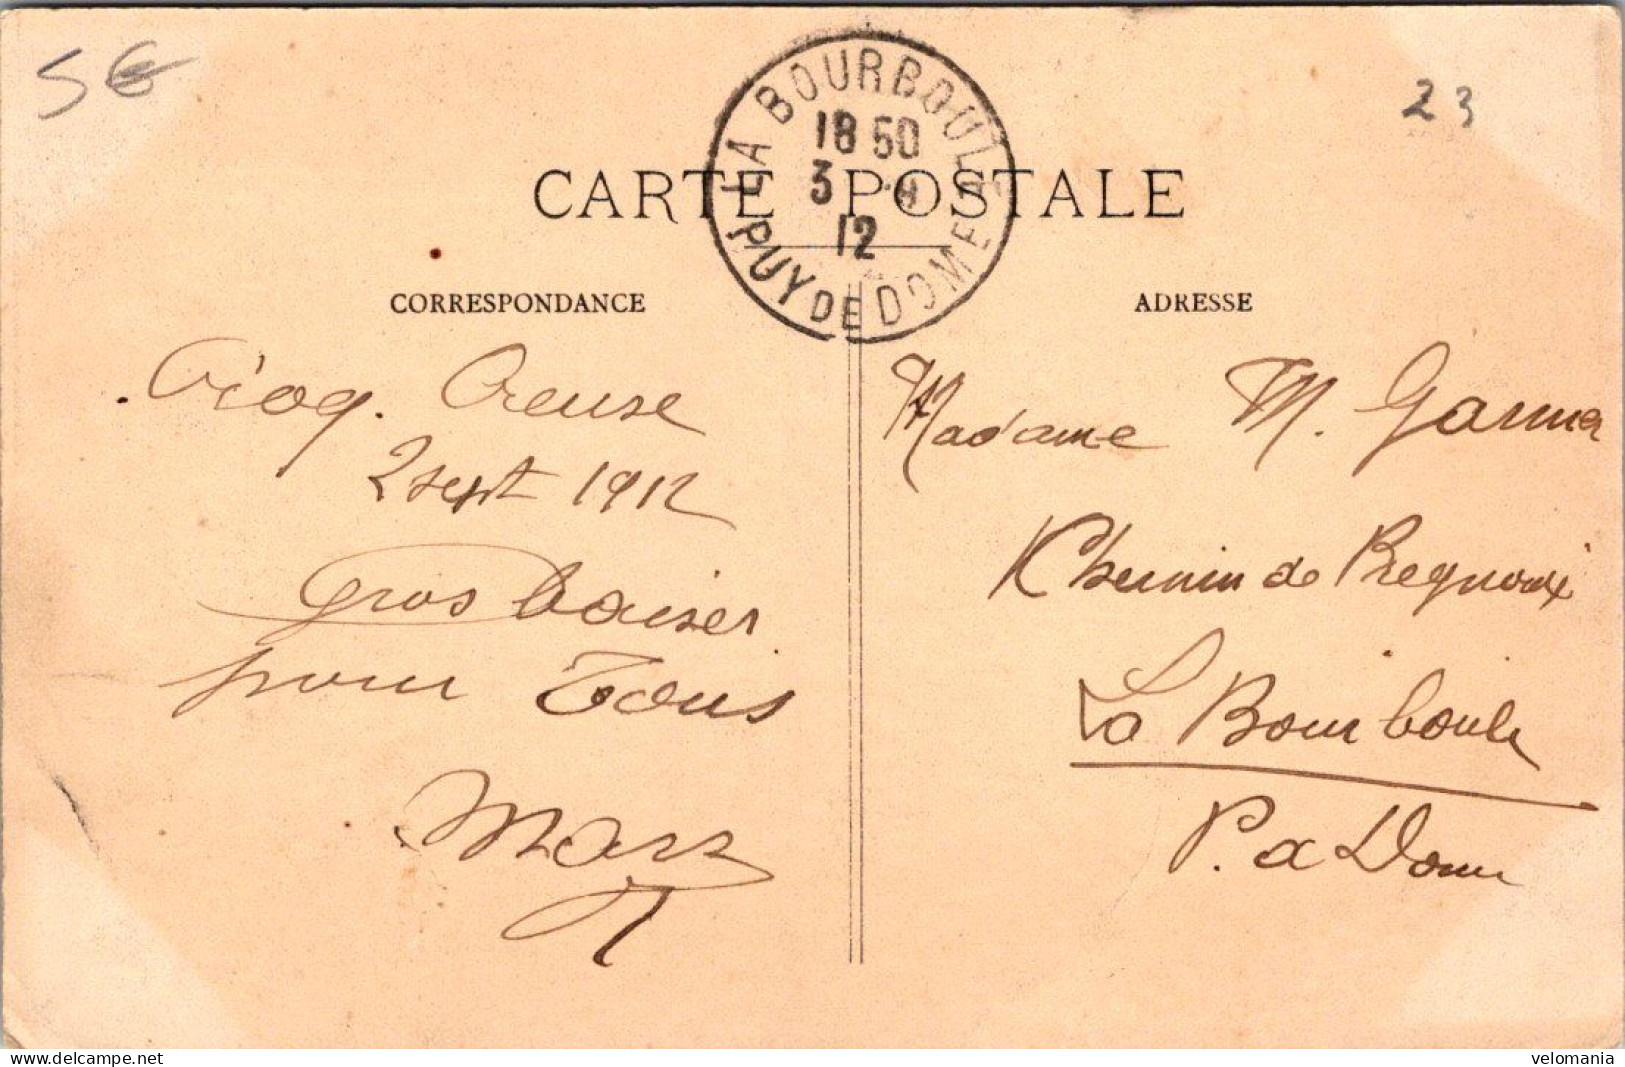 5€
23
LA BOURBOULE
18 50
3 -9
12
PUY DE DOME
CARTE POSTALE
CORRESPONDANCE
ADRESSE
Crocq. Creuse
2 sept 1912
Gros baiser
pour Tous
Madame M. Garnier
Chemin de Pregnoux
La Bourboule
P. de Dome
www.delcampe.net
velomania